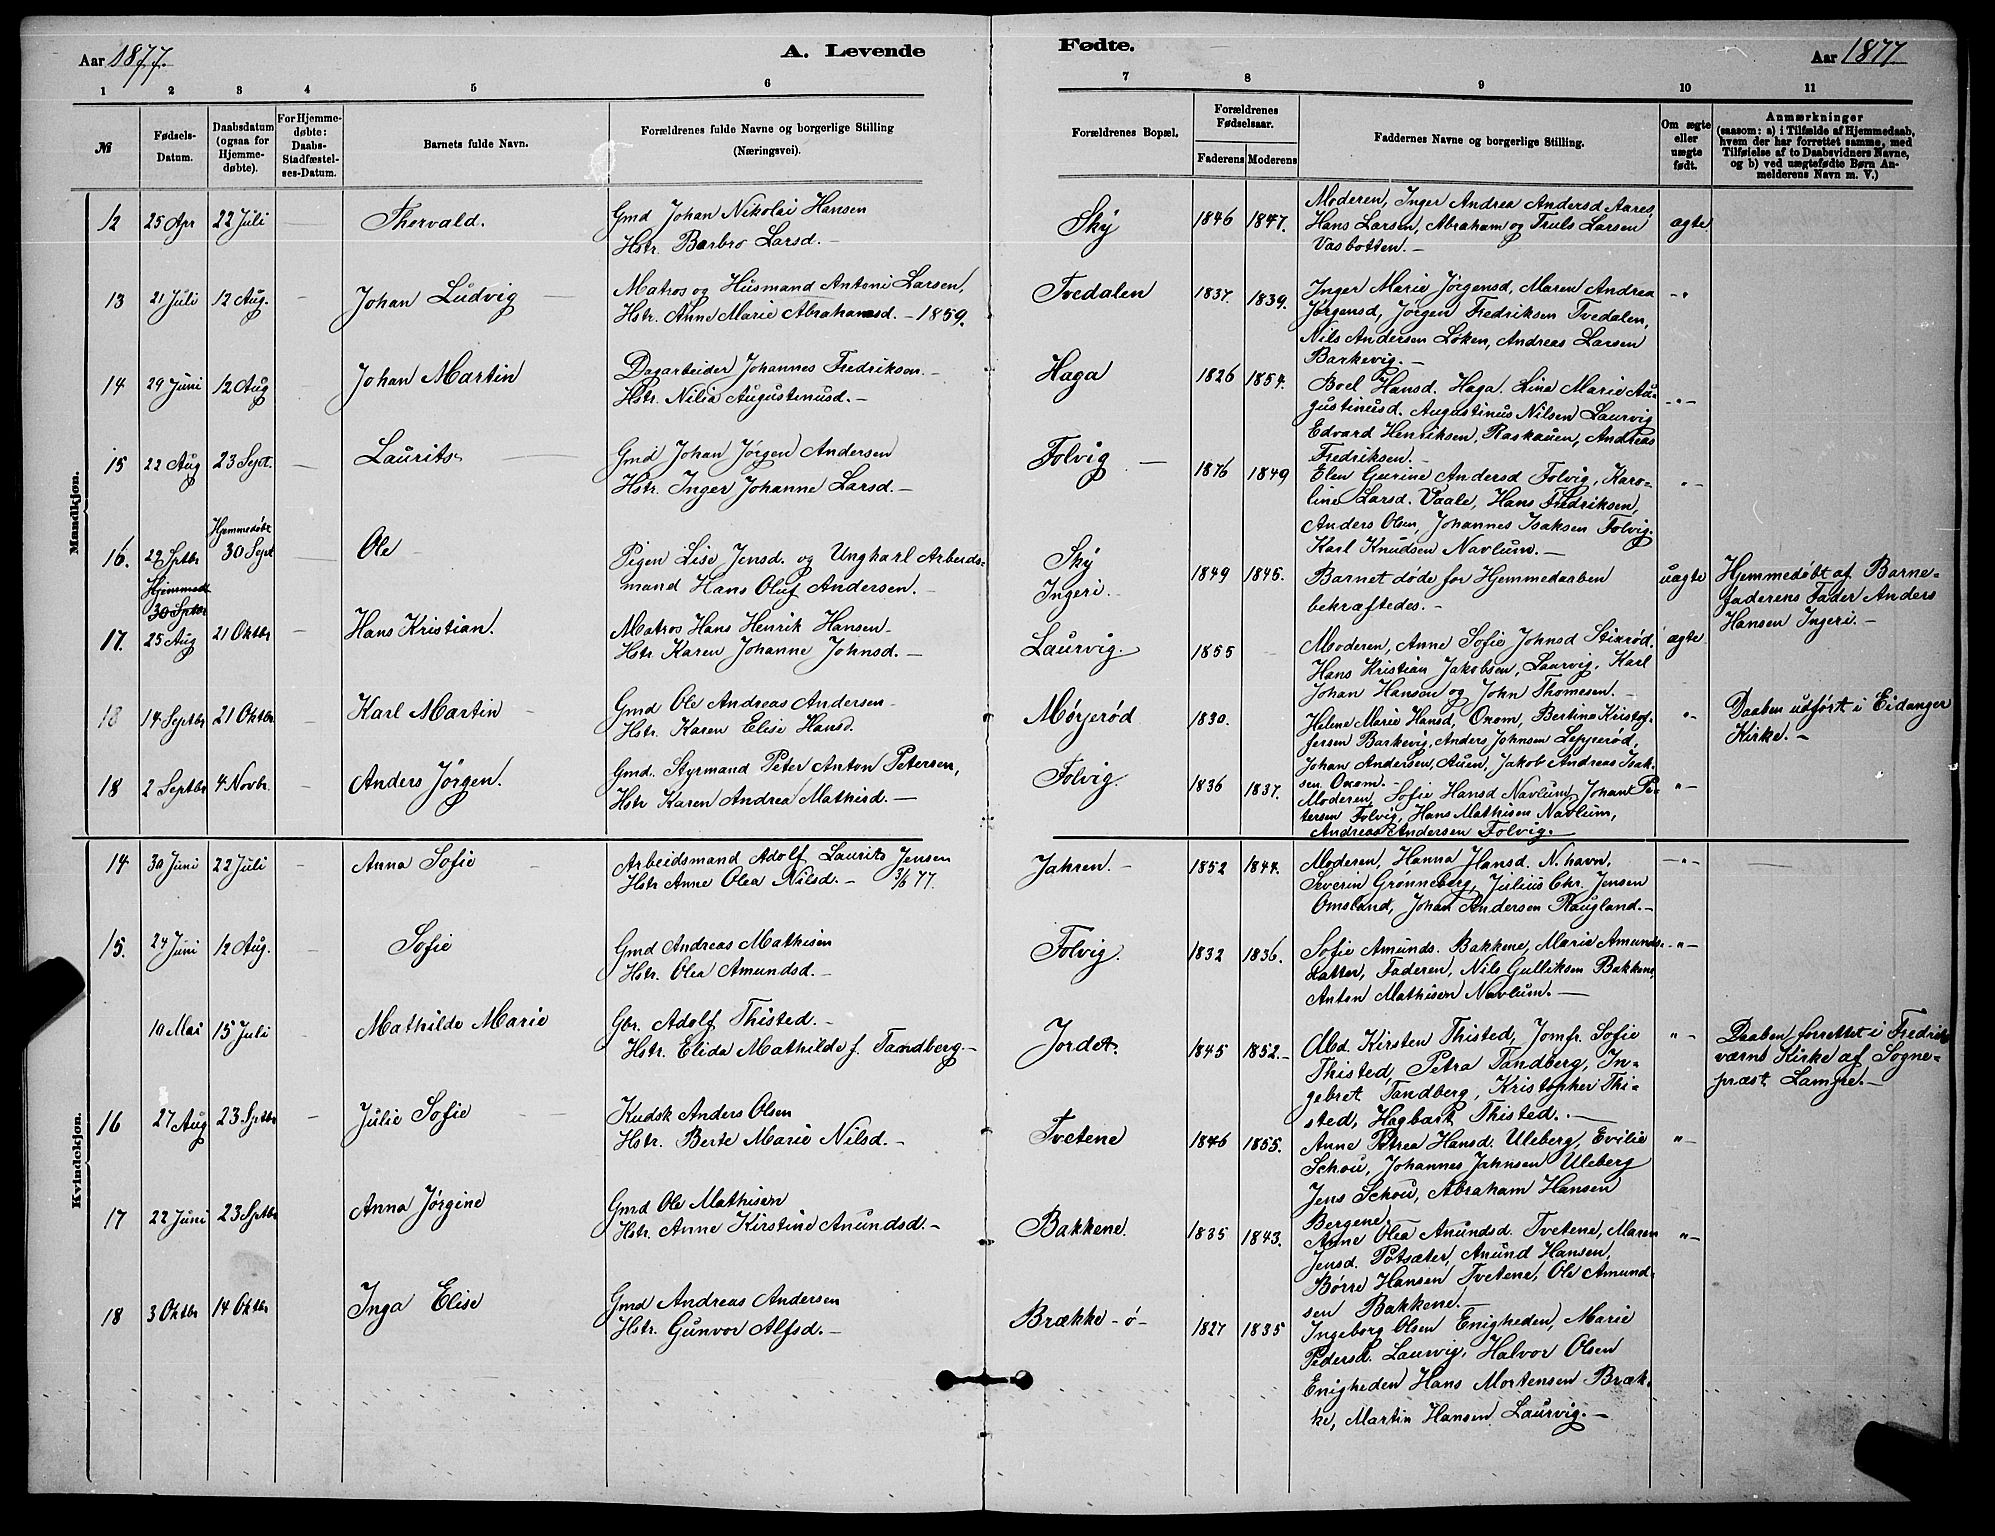 Aar 1877.
A. Levende
Fødte.
Aar 1877
1 2 3 4 5 6 7 8 9 10 11
№
Fødsels-Datum.
Daabsdatum (ogsaa for Hjemmedøbte).
For Hjemmedøbte: Daabs-Stadfæstelses-Datum.
Barnets fulde Navn.
Forældrenes fulde Navne og borgerlige Stilling (Næringsvei).
Forældrenes Bopæl.
Forældrenes Fødselsaar.
Faderens Moderens
Faddernes Navne og borgerlige Stilling.
Om ægte eller uægte født.
Anmærkninger
(saasom: a) i Tilfælde af Hjemmedaab, hvem der har forrettet samme, med Tilføielse af to Daabsvidners Navne, og b) ved uægtefødte Børn Anmelderens Navn m. V.)
Mandkjøn.
12 25 Apr 22 Juli Thorvald.
Gmd Johan Nikolai Hansen
Hstr. Barbro Larsd. -
Sky 1846 1847.
Moderen, Inger Andrea Andersd Aares,
Hans Larsen, Abraham og Truls Larsen
Vasbotten. -
ægte
13 21 Juli 12 Aug. Johan Ludvig
Matros og Husmand Antoni Larsen,
Hstr. Anne Marie Abrahamsd. - 1859.
Tvedalen 1837. 1839.
Inger Marie Jørgensd, Maren Andrea
Jørgensd, Jørgen Fredriksen Tvedalen,
Nils Andersen Løken, Andreas Larsen
Barkevig. -
-"-
14 29 Juni 12 Aug Johan Martin
Dagarbeider Johannes Fredriksen. -
Hstr. Nilia Augustinusd. -
Haga 1826 1854.
Boel Hansd. Haga. Lina Marie Au-
gustinusd. Augustinus Nilsen Laurvig
Edvard Henriksen, Raskauen, Andreas
Fredriksen. -
-"-
15 22 Aug 23 Sept. Laurits
Gmd Johan Jørgen Andersen
Hstr. Inger Johanne Larsd. -
Folvig - 1876 1849
Elen Gurine Andersd Folvig, Karo-
line Larsd. Vaale, Hans Fredriksen,
Anders Olsen, Johannes Isaksen Folvig.
Karl Knudsen Navlum. -
"-
16. 22 Sptbr Hjemmedøbt 30 Sept Ole
Hjemmedt 30 Sptbr
Pigen Lise Jensd. og Ungkarl Arbeids-
mand Hans Oluf Andersen. -
Sky
Ingeri. 1849 1845.
Barnet døde før Hjemmedaaben
bekræftedes. -
uægte
Hjemmedøbt af Barne-
faderens Fader Anders
Hansen Ingeri. -
17. 25 Aug 21 Oktbr Hans Kristian.
Matros Hans Henrik Hansen -
Hstr. Karen Johanne Johnsd. -
Laurvig. 1855
Moderen, Anne Sofie Johnsd Stixrød,
Hans Kristian Jakobsen, Laurvig, Karl
Johan Hansen og John Thomesen. -
ægte
18 14 Septbr 21 Oktbr Karl Martin
Gmd Ole Andreas Andersen -
Hstr. Karen Elise Hansd.
Mørjerød 1830.
Helene Marie Hansd, Oxom, Bertine Kristof-
fersen Barkevig, Anders Johnsen Lepperød,
Johan Andersen, Auen, Jakob Andreas Isak-
sen Oxom.
"-
Daaben udført i Eidanger
Kirke. -
18 2 Septbr 4 Novbr. Anders Jørgen.
Gmd. Styrmand Peter Anton Petersen,
Hstr Karen Andrea Mathisd. -
Folvig. 1836 1837.
Moderen, Sofie Hansd Navlum, Johan Pe-
tersen Folvig, Hans Mathisen Navlum,
Andreas Andersen Folvig. -
"-
Kvindekjøn.
14 30 Juni 22 Juli Anna Sofie
Arbeidsmand Adolf Laurits Jensen
Hstr Anne Olea Nilsd. - 3/6 77.
Jahren. - 1852 1844.
Moderen, Hanna Hansd. N.havn,
Severin Grønneberg, Julius Chr. Jensen
Omsland, Johan Andersen Raugland. -
-"-
15. 24 Juni 12 Aug. Sofie
Gmd Andreas Mathisen
Hstr. Olea Amundsd. -
Folvig. 1832 1836.
Sofie Amunds. Bakkene, Marie Amunds-
datter, Faderen, Nils Gulliksen Bakkene,
Anton Mathisen Navlum. -
-"-
10 Mai 15 Juli Mathilde Marie
Gbr. Adolf Thisted. -
Hstr. Elida Mathilde f. Tandberg. -
Jordet. 1845 1852. -
Mad. Kirsten Thisted, Jomfr. Sofie
Thisted, Petra Tandberg, In-
gebret Tandberg, Kristopher Thi-
sted, Hagbart Thisted. -
"-
Daaben forrettet i Fredriks
værns Kirke af Sogne-
præst Lampe. -
16 27 Aug 23 Sptbr Julie Sofie
Kudsk Anders Olsen
Hstr. Berte Marie Nilsd. -
Tvetene 1846 1855.
Anne Petrea Hansd. Uleberg, Evilie
Schou, Johannes Jahnsen Uleberg
Jens Schou, Abraham Hansen
Bergene,
"-
17 22 Juni 23 Sptbr Anna Jørgine
Gmd Ole Mathisen
Hstr. Anne Kirstine Anundsd. -
Bakkene. 1835 1843.
Anne Olea Anundsd. Tvetene, Maren
Jensd. Potsæter, Anund Hansen,
Børre Hansen Tvetene, Ole Amund-
sen Bakkene. -
"-
18 3 Oktbr 14 Oktbr Inga Elise
Gmd Andreas Andersen
Hstr. Gunvor Alfsd. -
Brække-ø- 1827 1835
Ingeborg Olsen Enigheden, Marie
Pedersd. Laurvig, Halvor Olsen
Enigheden Hans Mortensen Bræk-
ke, Martin Hansen Laurvig. -